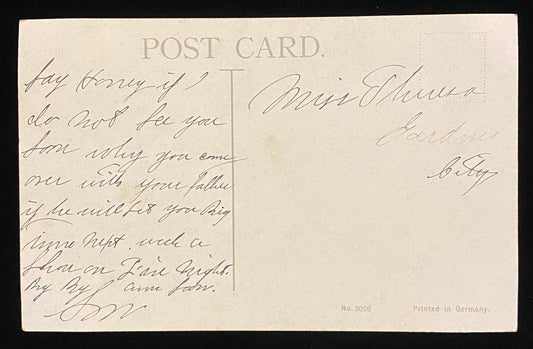 POST CARD.
Say Honey if I
do not see you
soon why you come
over with your father
if he will let you Big
time next week a
Show on Night.
By By soon.
Miss Theresa
Gardner
City
No. 3026
Printed in Germany.